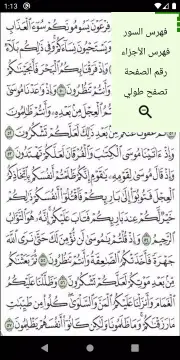 1:13
فهرس السور
فهرس الأجزاء
رقم الصفحة
تصفح طولي
فِرْعَوْنَ يَسُومُونَكُمْ سُوٓءَ ٱلْعَذَابِ
وَيَسْتَحْيُونَ نِسَآءَكُمْ وَفِى ذَٰلِكُم بَلَآءٌ
وَإِذْ فَرَقْنَا بِكُمُ ٱلْبَحْرَ فَأَنجَيْنَٰكُمْ
وَإِذْ وَٰعَدْنَا مُوسَىٰٓ
ٱلْعِجْلَ مِنۢ بَعْدِهِۦ وَأَنتُمْ ظَٰلِمُونَ
مِّنۢ بَعْدِ ذَٰلِكَ لَعَلَّكُمْ تَشْكُرُونَ ٥٢
وَإِذْ ءَاتَيْنَا مُوسَى ٱلْكِتَٰبَ وَٱلْفُرْقَانَ لَعَلَّكُمْ تَهْتَدُونَ ٥٣
وَإِذْ قَالَ مُوسَىٰ لِقَوْمِهِۦ يَٰقَوْمِ إِنَّكُمْ ظَلَمْتُمْ أَنفُسَكُم بِٱتِّخَاذِكُمُ
ٱلْعِجْلَ فَتُوبُوٓا۟ إِلَىٰ بَارِئِكُمْ فَٱقْتُلُوٓا۟ أَنفُسَكُمْ ذَٰلِكُمْ
خَيْرٌ لَّكُمْ عِندَ بَارِئِكُمْ فَتَابَ عَلَيْكُمْ إِنَّهُۥ هُوَ ٱلتَّوَّابُ
ٱلرَّحِيمُ ٥٤ وَإِذْ قُلْتُمْ يَٰمُوسَىٰ لَن نُّؤْمِنَ لَكَ حَتَّىٰ نَرَى ٱللَّهَ
جَهْرَةً فَأَخَذَتْكُمُ ٱلصَّٰعِقَةُ وَأَنتُمْ تَنظُرُونَ ٥٥ ثُمَّ بَعَثْنَٰكُم
مِّنۢ بَعْدِ مَوْتِكُمْ لَعَلَّكُمْ تَشْكُرُونَ ٥٦ وَظَلَّلْنَا عَلَيْكُمُ
ٱلْغَمَامَ وَأَنزَلْنَا عَلَيْكُمُ ٱلْمَنَّ وَٱلسَّلْوَىٰ كُلُوا۟ مِن طَيِّبَٰتِ
مَا رَزَقْنَٰكُمْ وَمَا ظَلَمُونَا وَلَٰكِن كَانُوٓا۟ أَنفُسَهُمْ يَظْلِمُونَ ٥٧